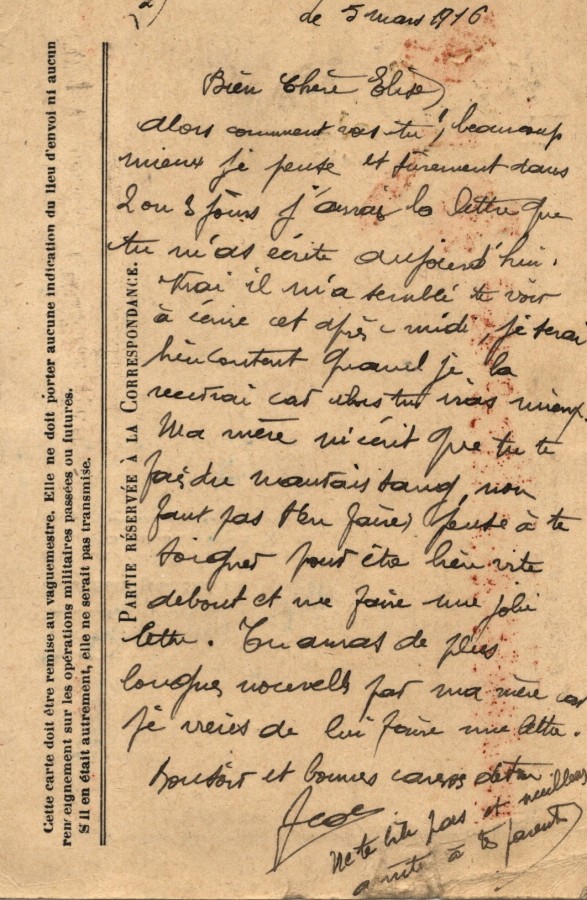 2)
de 5 mars 1916
Bien Chère Elise,
alors comment vas-tu, beaucoup
mieux je pense et sûrement dans
2 ou 3 jours j'aurai la lettre que
tu m'as écrite aujourd'hui.
Vrai il m'a semblé te voir
à écrire cet après-midi, je serai
bien content quand je la
recevrai car alors tu vas mieux.
Ma mère m'écrit que tu te
fais du mauvais sang, non
faut pas t'en faire, pense à te
soigner pour être bien vite
debout et me faire une jolie
lettre. Tu auras de plus
longues nouvelles par ma mère car
je viens de lui faire une lettre.
Bonsoir et bonnes caresses de ton
Jean
Ne te bile pas et meilleure
amitié à tes parents
PARTIE RÉSERVÉE À LA CORRESPONDANCE.
Cette carte doit être remise au vaguemestre. Elle ne doit porter aucune indication du lieu d'envoi ni aucun
renseignement sur les opérations militaires passées ou futures.
S'il en était autrement, elle ne serait pas transmise.